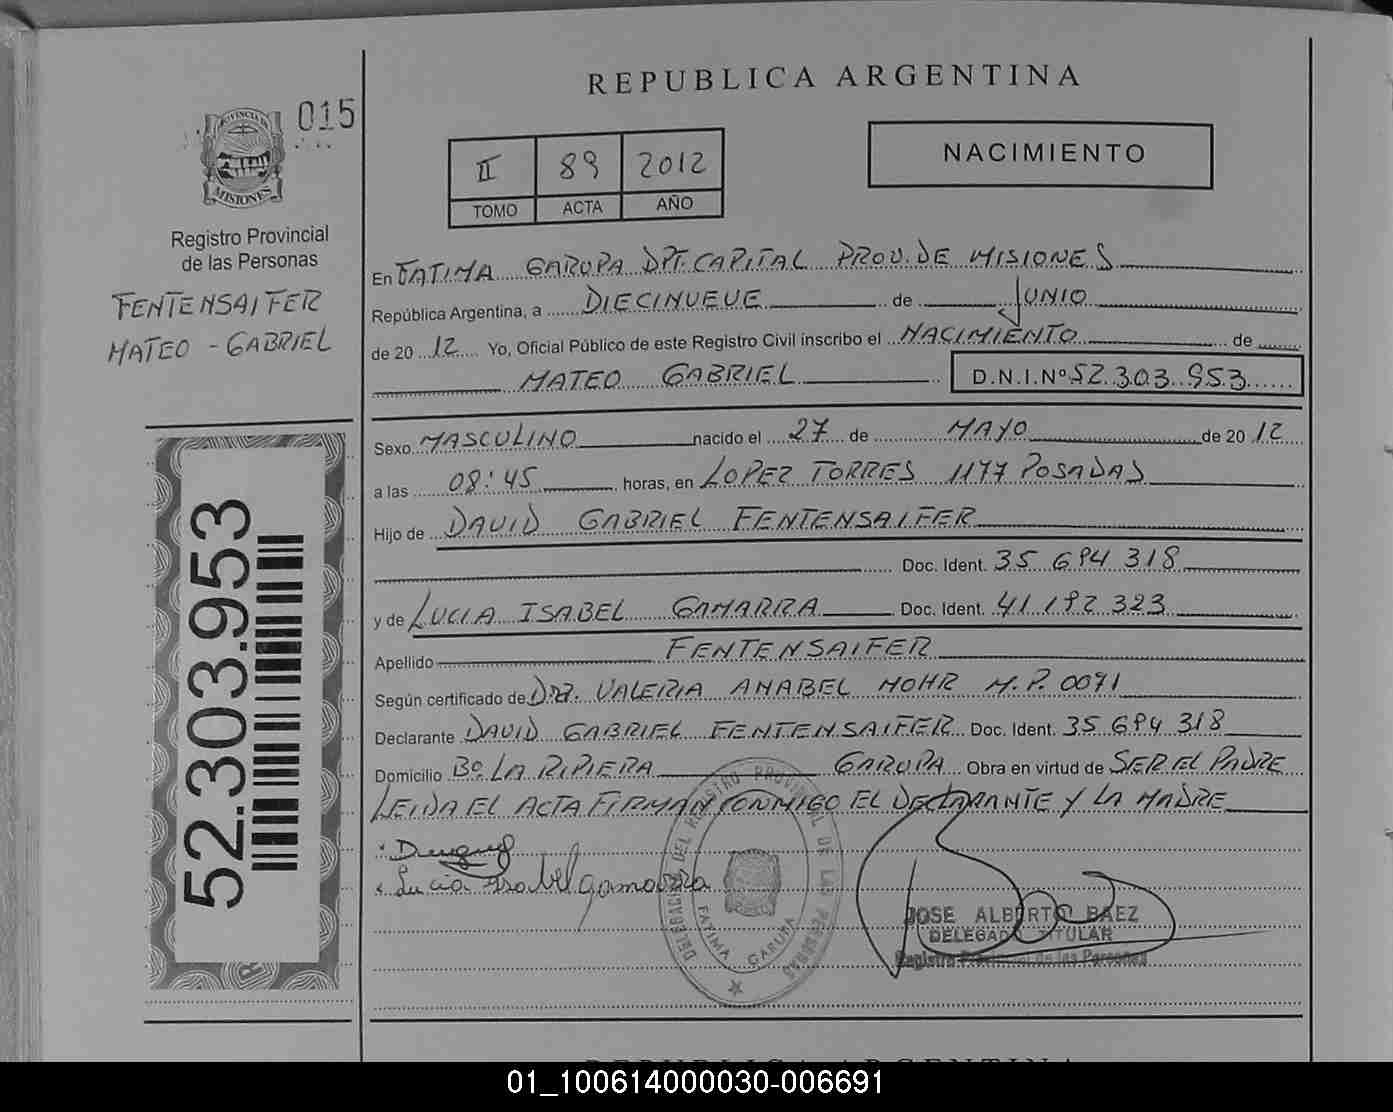 REPUBLICA ARGENTINA
015
PROVINCIA DE
MISIONES
Registro Provincial
de las Personas
FENTENSAIFER
MATEO - GABRIEL
II 89 2012
TOMO ACTA AÑO
NACIMIENTO
En FATIMA GARUPA DPT. CAPITAL PROV. DE MISIONES
República Argentina, a DIECINUEVE de JUNIO
de 2012 Yo, Oficial Público de este Registro Civil inscribo el NACIMIENTO de
MATEO GABRIEL D.N.I.Nº 52.303.953
Sexo MASCULINO nacido el 27 de MAYO de 2012
a las 08:45 horas, en LOPEZ TORRES 1177 POSADAS
Hijo de DAVID GABRIEL FENTENSAIFER
Doc. Ident. 35 694 318
y de LUCIA ISABEL GAMARRA Doc. Ident. 41 192 323
Apellido FENTENSAIFER
Según certificado de DRA. VALERIA ANABEL MOHR M.P. 0071
Declarante DAVID GABRIEL FENTENSAIFER Doc. Ident. 35 694 318
Domicilio Bº LA RIPIERA GARUPA Obra en virtud de SER EL PADRE
LEIDA EL ACTA FIRMAN CONMIGO EL DECLARANTE Y LA MADRE
Lucia Isabel gamarra
DELEGACION DEL REGISTRO PROVINCIAL DE LAS PERSONAS
FATIMA GARUPA
JOSE ALBERTO BAEZ
DELEGADO TITULAR
Registro Provincial de las Personas
52.303.953
REPUBLICA ARGENTINA
01_100614000030-006691